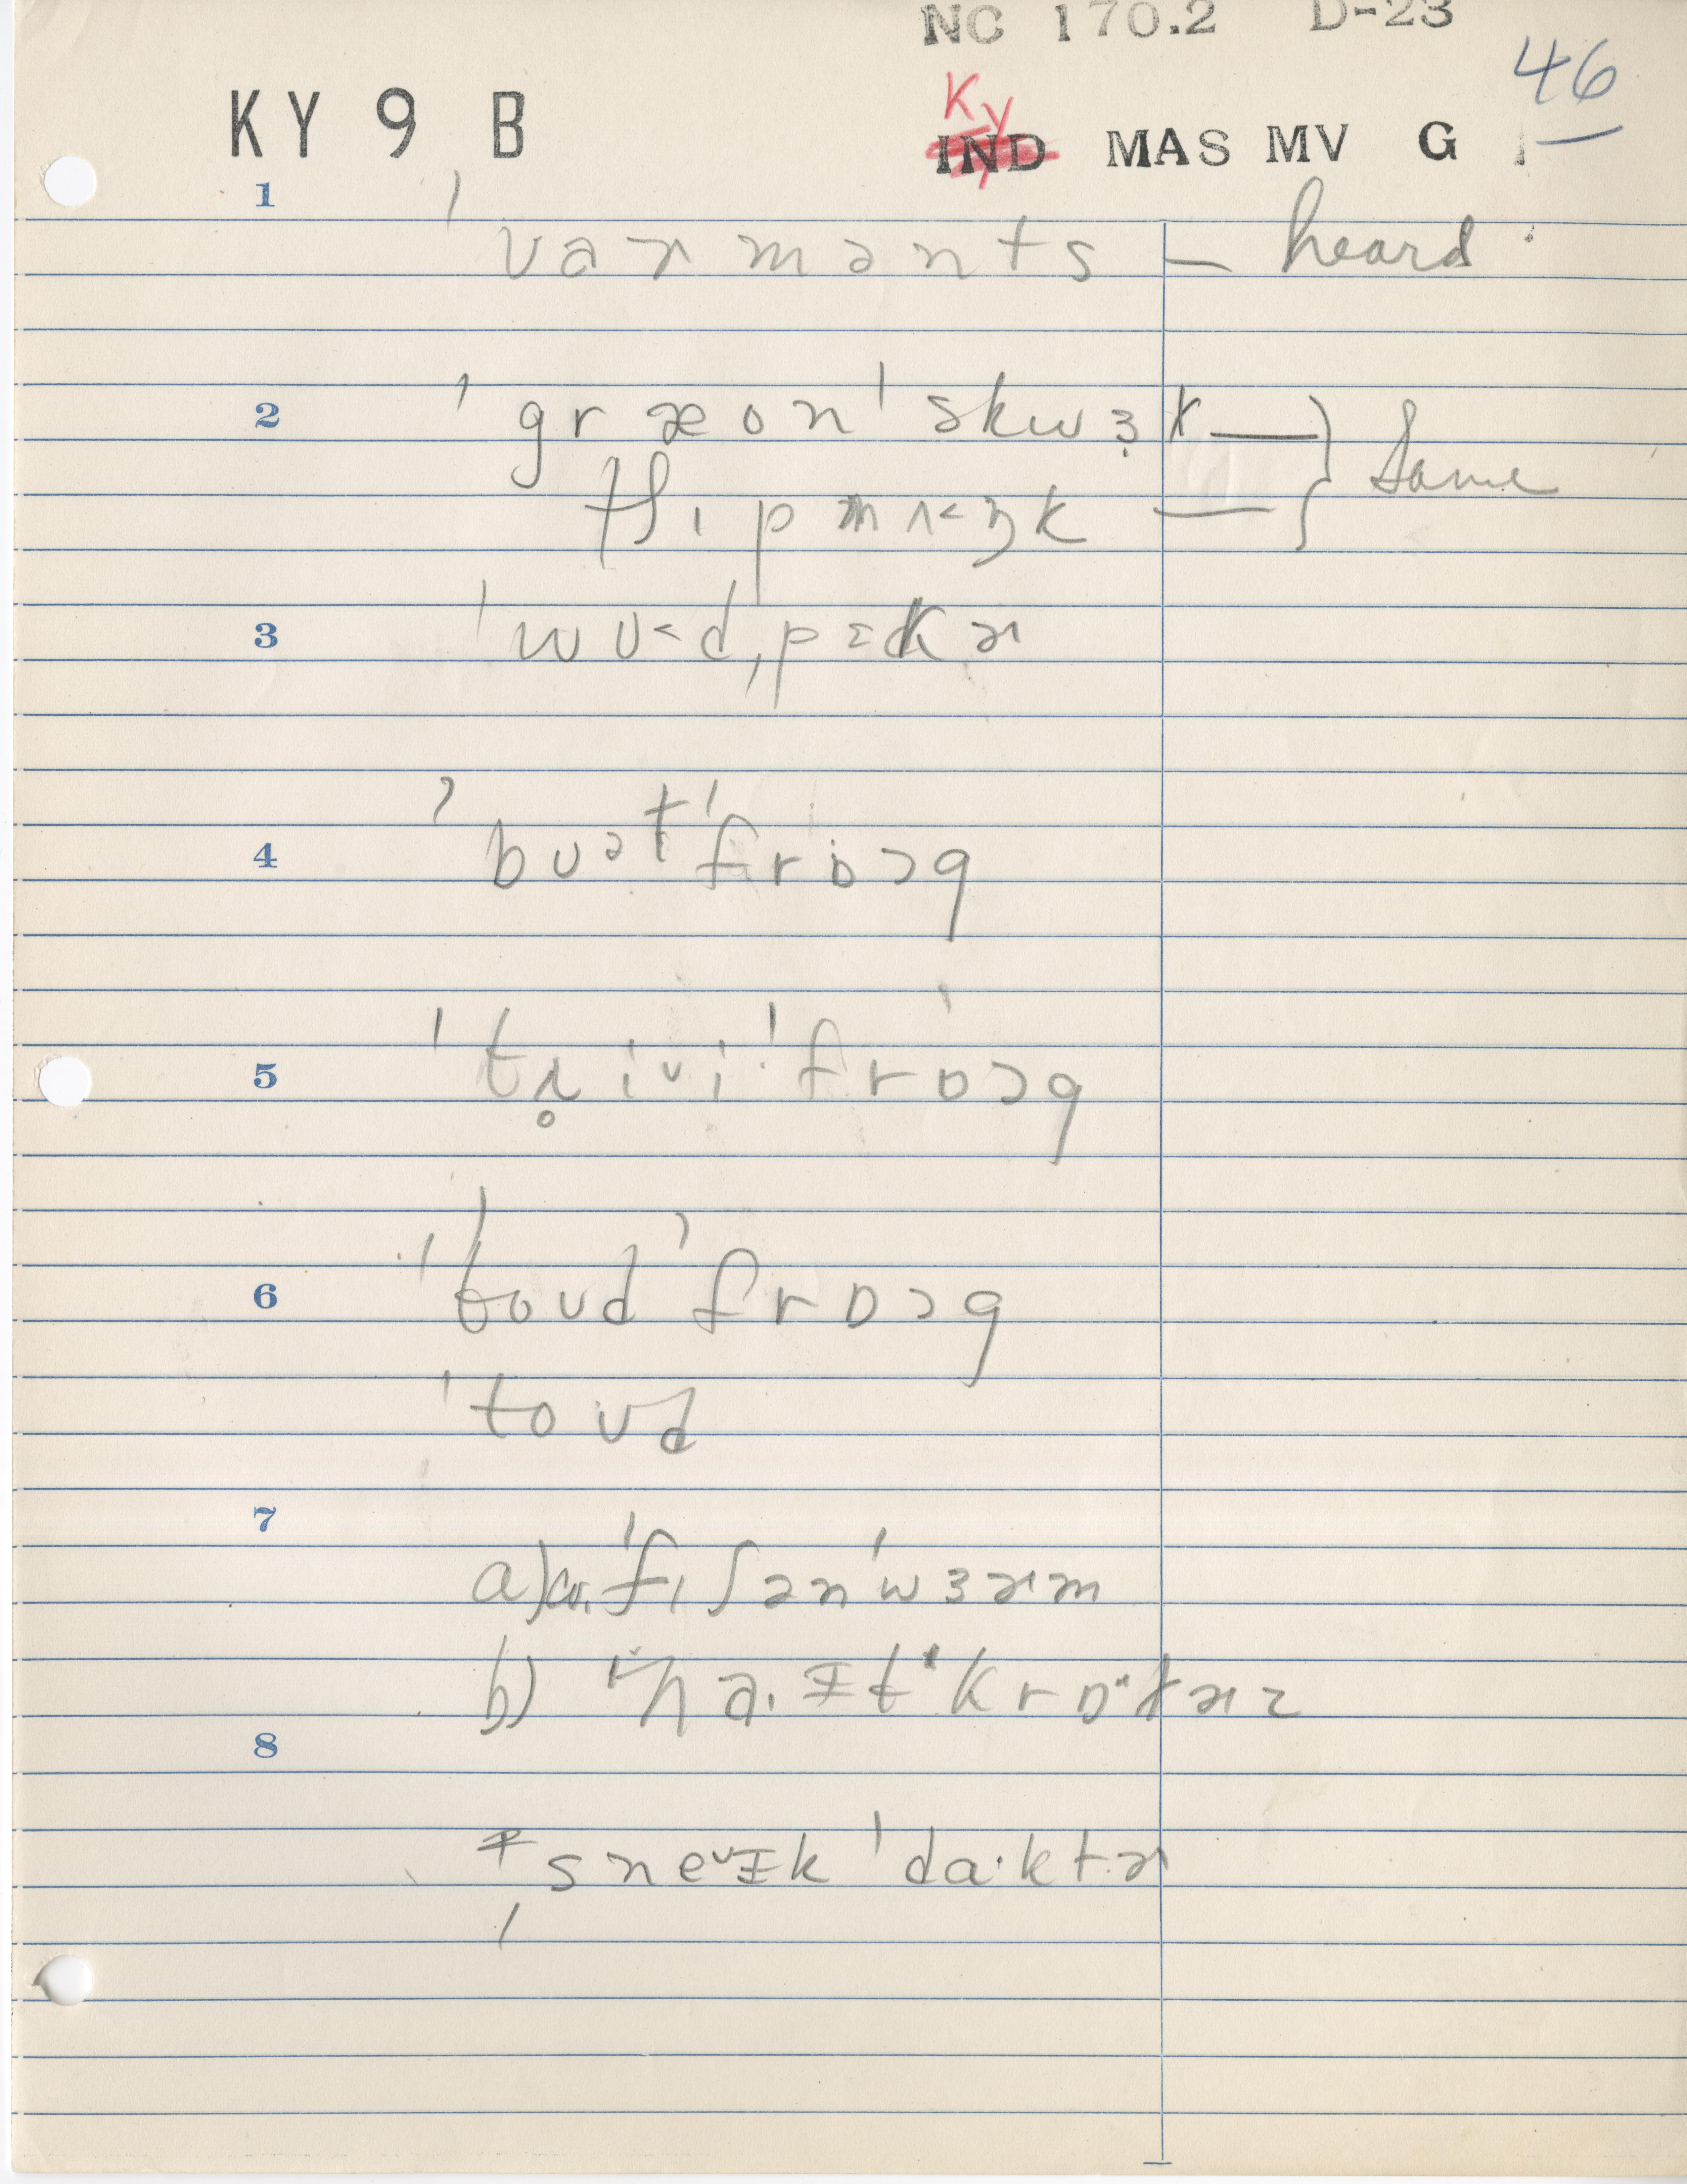 NC 170.2 D-23
46
KY 9 B
Ky
IND MAS MV G
1
ˈvaɚmənts — heard
2
ˈgræonˈskwɜ̣ɫ —} Same
tʃɪpmʌ˂ŋk —
3
ˈwʊ˂dˌpɛkɚ
4
ˈbʊəɫˈfrɒɔg
5
ˈtɹ̥iᵛiˈfrɒɔg
6
ˈtoʊdˈfrɒɔg
ˈtoʊd
7
a) cr. ˈfɪʃənˈwɜɚm
b) ˈna.ɪt ˈkrɒˑlɚz
8
sneᵛɪkˈdɑ·ktɚ